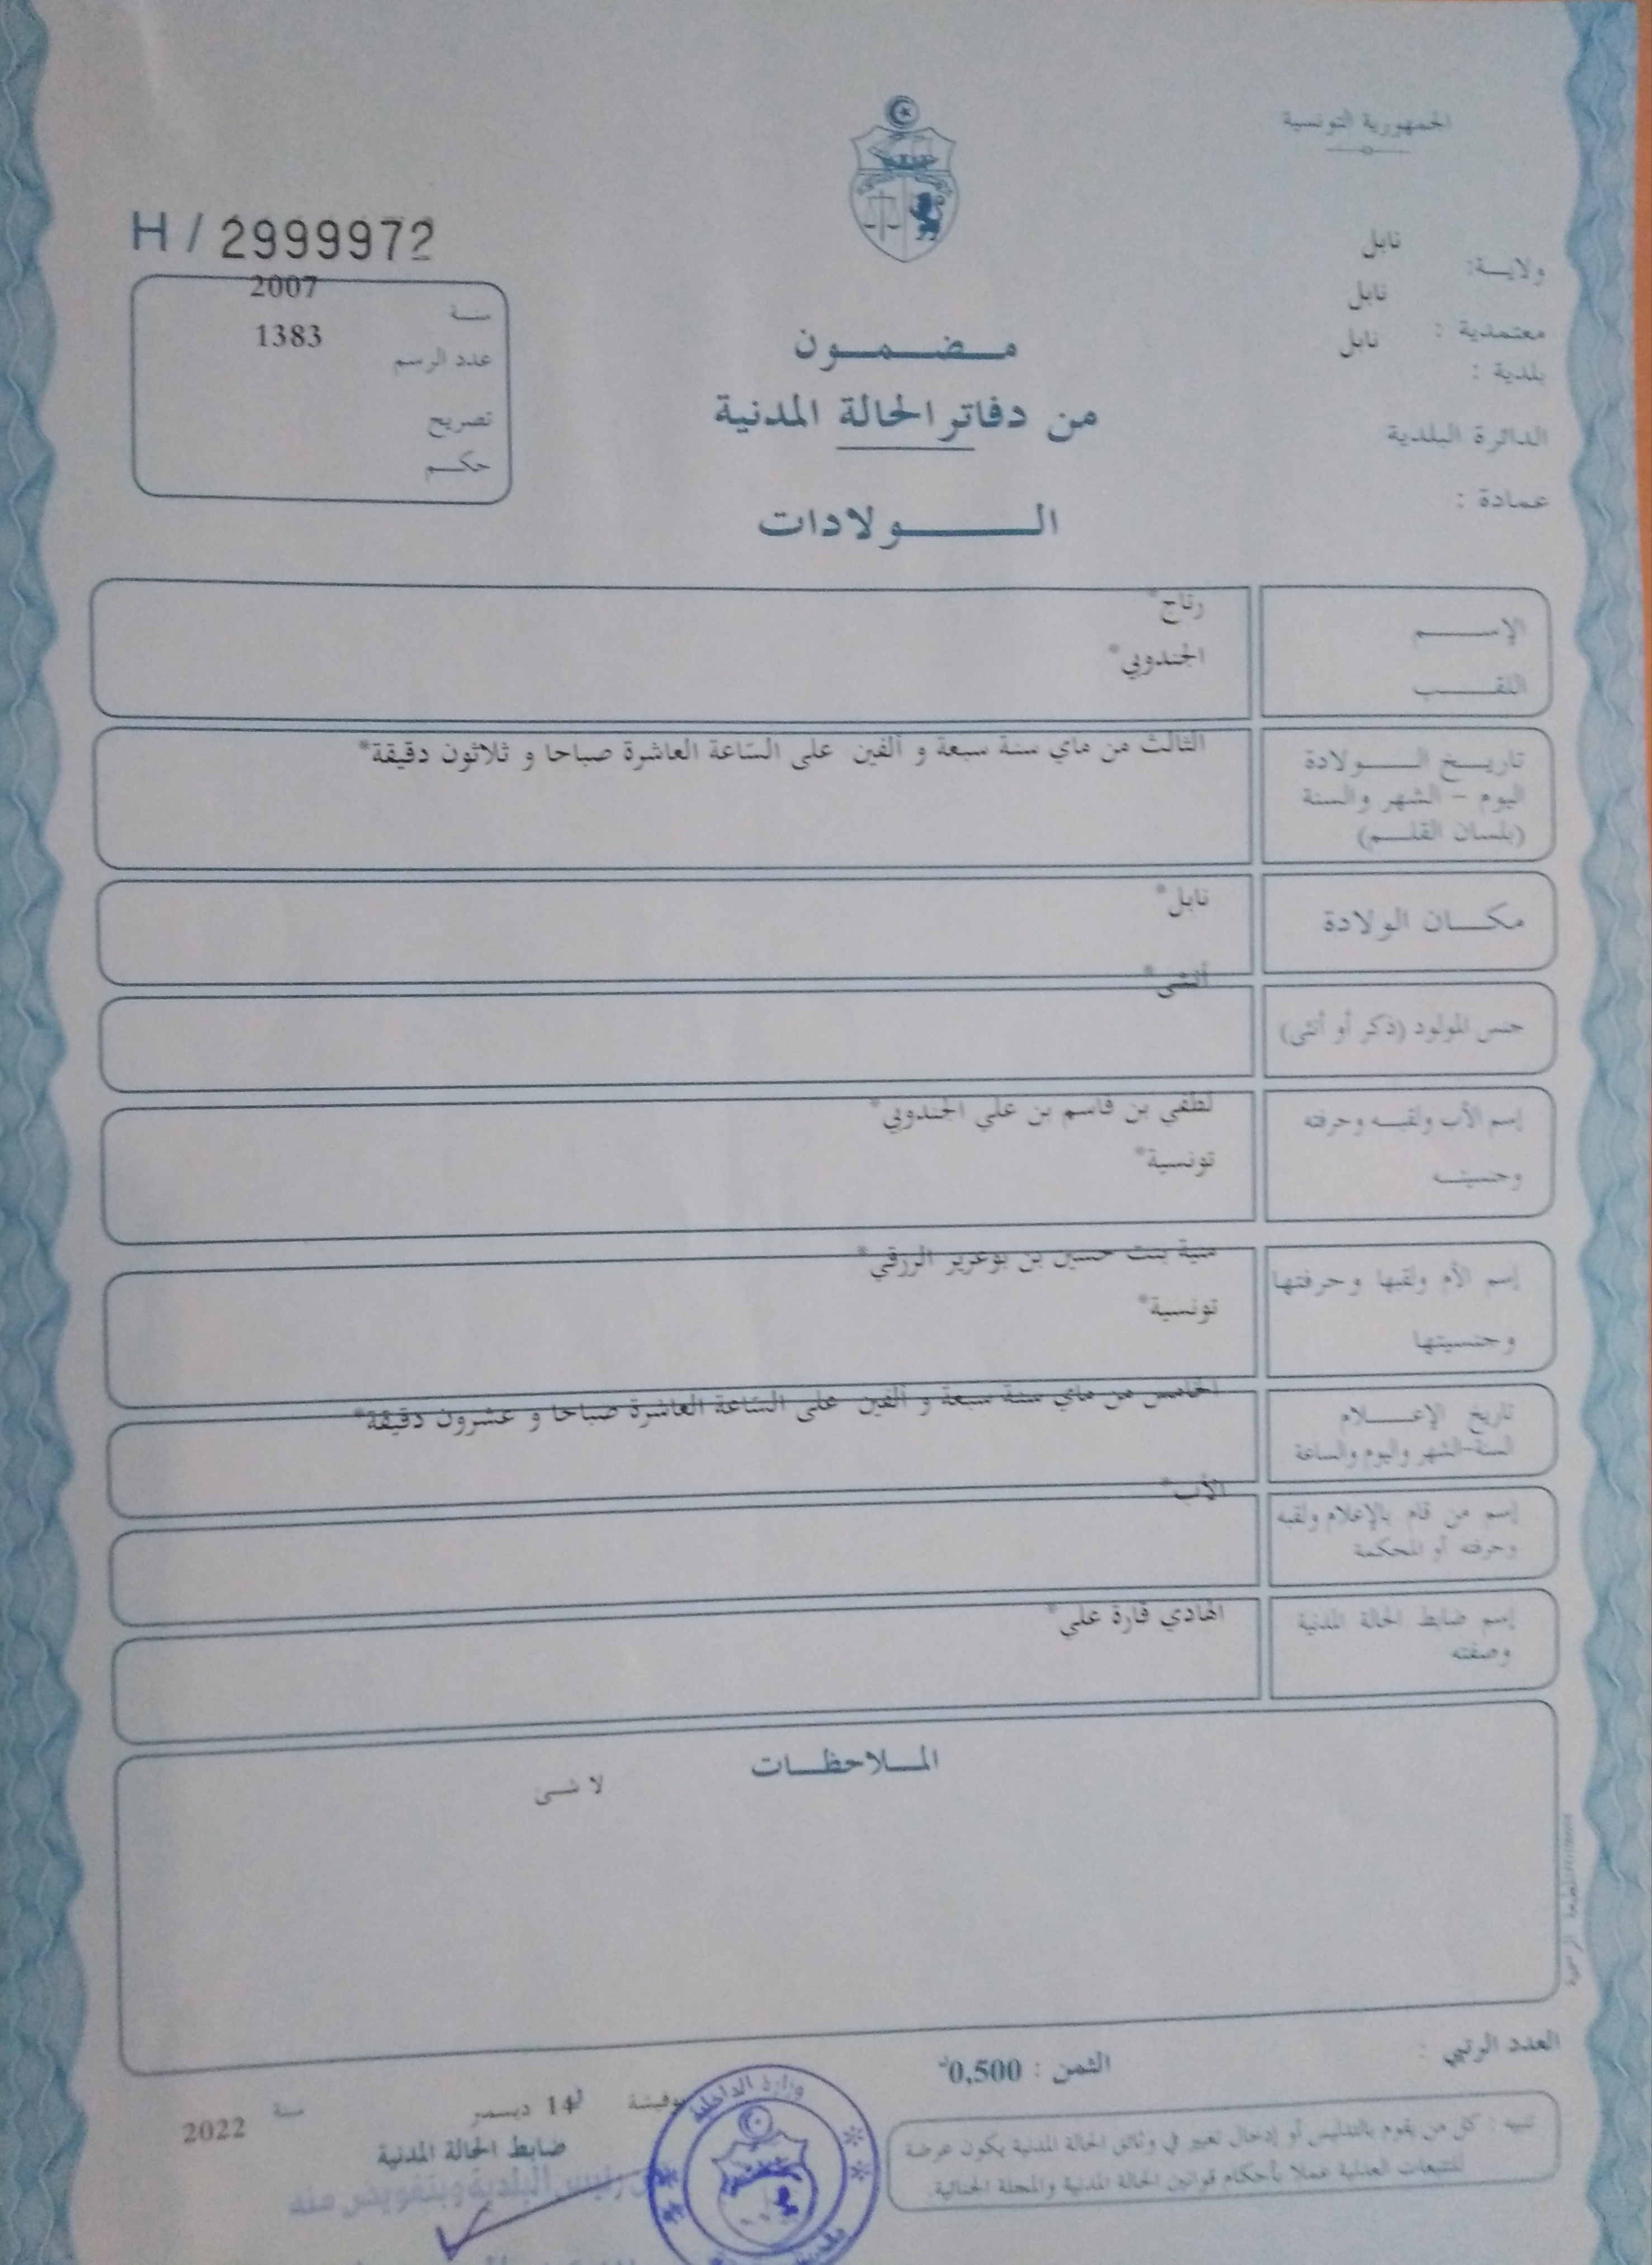 الجمهورية التونسية
ولايـــة: نابل
معتمدية : نابل
بلدية : نابل
الدائرة البلدية
عمادة :
مـــضـــمـــون
من دفاتر الحالة المدنية
الـــــــولادات
H / 2999972
سنـــة 2007
عدد الرسم 1383
تصريح
حكـــم
الإســـــم رتاج*
اللقـــــب الجندوبي*
تاريـــخ الـــــولادة الثالث من ماي سنة سبعة و ألفين على الساعة العاشرة صباحا و ثلاثون دقيقة*
اليوم – الشهر والسنة
(بلسان القلـــم)
مكـــان الولادة نابل*
جنس المولود (ذكر أو أنثى) أنثى*
إسم الأب ولقبـــه وحرفته لطفي بن قاسم بن علي الجندوبي*
وجنسيتـــه تونسية*
إسم الأم ولقبها وحرفتها منية بنت حسين بن بوعزيز الرزقي*
وجنسيتها تونسية*
تاريخ الإعـــــلام الخامس من ماي سنة سبعة و ألفين على الساعة العاشرة صباحا و عشرون دقيقة*
السنة-الشهر واليوم والساعة
إسم من قام بالإعلام ولقبه الأب*
وحرفته أو المحكمة
إسم ضابط الحالة المدنية الهادي قارة علي*
وصفته
المـــلاحظـــات
لا شـــى
العدد الرتبي :
الثمن : 0,500د
تنبيه : كل من يقوم بالتدليس أو إدخال تغيير في وثائق الحالة المدنية يكون عرضة
للتتبعات العدلية عملا بأحكام قوانين الحالة المدنية والمجلة الجنائية.
14 ديسمبر سنة 2022
ضابط الحالة المدنية
رئيس البلدية وبتفويض منه
وزارة الداخلية